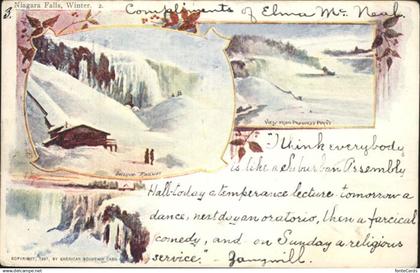 Niagara Falls, Winter. 2.
Compliments of Elma Mc Neal.
3.
VIEW FROM PROSPECT POINT
INCLINE RAILWAY
"I think everybody
is like a Suburban Assembly
Hall-today a temperance lecture, tomorrow a
dance, next day an oratorio, then a farcical
comedy, and on Sunday a religious
service." - Zangwill.
COPYRIGHT, 1897, BY AMERICAN SOUVENIR CARD